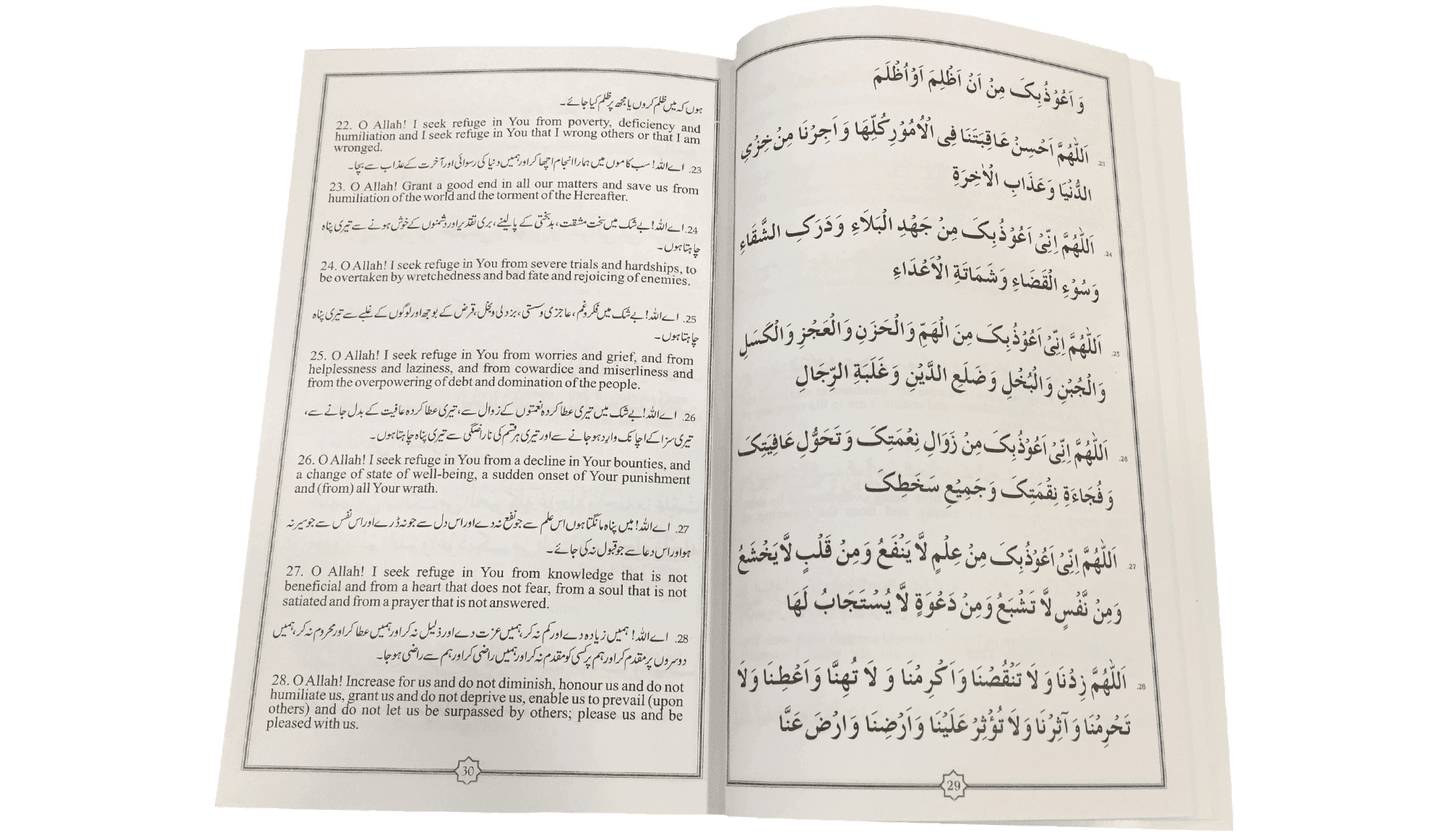 وَ اَعُوْذُبِکَ مِنْ اَنْ اَظْلِمَ اَوْاُظْلَمَ
23. اَللّٰهُمَّ اَحْسِنْ عَاقِبَتَنَا فِی الْاُمُوْرِ کُلِّهَا وَ اَجِرْنَا مِنْ خِزْیِ
الدُّنْیَا وَ عَذَابِ الْاٰخِرَةِ
24. اَللّٰهُمَّ اِنِّیْ اَعُوْذُبِکَ مِنْ جَهْدِ الْبَلَاءِ وَ دَرَکِ الشَّقَاءِ
وَسُوْءِ الْقَضَاءِ وَ شَمَاتَةِ الْاَعْدَاءِ
25. اَللّٰهُمَّ اِنِّیْ اَعُوْذُبِکَ مِنَ الْهَمِّ وَالْحَزَنِ وَالْعَجْزِ وَالْکَسَلِ
وَالْجُبْنِ وَالْبُخْلِ وَ ضَلَعِ الدَّیْنِ وَ غَلَبَةِ الرِّجَالِ
26. اَللّٰهُمَّ اِنِّیْ اَعُوْذُبِکَ مِنْ زَوَالِ نِعْمَتِکَ وَ تَحَوُّلِ عَافِیَتِکَ
وَ فُجَاءَةِ نِقْمَتِکَ وَ جَمِیْعِ سَخَطِکَ
27. اَللّٰهُمَّ اِنِّیْ اَعُوْذُبِکَ مِنْ عِلْمٍ لَّا یَنْفَعُ وَ مِنْ قَلْبٍ لَّا یَخْشَعُ
وَ مِنْ نَّفْسٍ لَّا تَشْبَعُ وَ مِنْ دَعْوَةٍ لَّا یُسْتَجَابُ لَهَا
28. اَللّٰهُمَّ زِدْنَا وَ لَا تَنْقُصْنَا وَ اَکْرِمْنَا وَ لَا تُهِنَّا وَ اَعْطِنَا وَلَا
تَحْرِمْنَا وَ آثِرْنَا وَلَا تُؤْثِرْ عَلَیْنَا وَ اَرْضِنَا وَ ارْضَ عَنَّا
29
ہوں کہ میں ظلم کروں یا مجھ پر ظلم کیا جائے۔
22. O Allah! I seek refuge in You from poverty, deficiency and
humiliation and I seek refuge in You that I wrong others or that I am
wronged.
23. اے اللہ! سب کاموں میں ہمارا انجام اچھا کر اور ہمیں دنیا کی رسوائی اور آخرت کے عذاب سے بچا۔
23. O Allah! Grant a good end in all our matters and save us from
humiliation of the world and the torment of the Hereafter.
24. اے اللہ! بے شک میں سخت مشقت، بدبختی کے پالینے، بری تقدیر اور دشمنوں کے خوش ہونے سے تیری پناہ
چاہتا ہوں۔
24. O Allah! I seek refuge in You from severe trials and hardships, to
be overtaken by wretchedness and bad fate and rejoicing of enemies.
25. اے اللہ! بے شک میں فکر و غم، عاجزی و سستی، بزدلی و بخل، قرض کے بوجھ اور لوگوں کے غلبے سے تیری پناہ
چاہتا ہوں۔
25. O Allah! I seek refuge in You from worries and grief, and from
helplessness and laziness, and from cowardice and miserliness and
from the overpowering of debt and domination of the people.
26. اے اللہ! بے شک میں تیری عطا کردہ نعمتوں کے زوال سے، تیری عطا کردہ عافیت کے بدل جانے سے،
تیری سزا کے اچانک وارد ہو جانے سے اور تیری ہر قسم کی ناراضگی سے تیری پناہ چاہتا ہوں۔
26. O Allah! I seek refuge in You from a decline in Your bounties, and
a change of state of well-being, a sudden onset of Your punishment
and (from) all Your wrath.
27. اے اللہ! میں پناہ مانگتا ہوں اس علم سے جو نفع نہ دے اور اس دل سے جو نہ ڈرے اور اس نفس سے جو سیر نہ
ہو اور اس دعا سے جو قبول نہ کی جائے۔
27. O Allah! I seek refuge in You from knowledge that is not
beneficial and from a heart that does not fear, from a soul that is not
satiated and from a prayer that is not answered.
28. اے اللہ! ہمیں زیادہ دے اور کم نہ کر، ہمیں عزت دے اور ذلیل نہ کر اور ہمیں عطا کر اور محروم نہ کر، ہمیں
دوسروں پر مقدم کر اور ہم پر کسی کو مقدم نہ کر اور ہمیں راضی کر اور ہم سے راضی ہو جا۔
28. O Allah! Increase for us and do not diminish, honour us and do not
humiliate us, grant us and do not deprive us, enable us to prevail (upon
others) and do not let us be surpassed by others; please us and be
pleased with us.
30